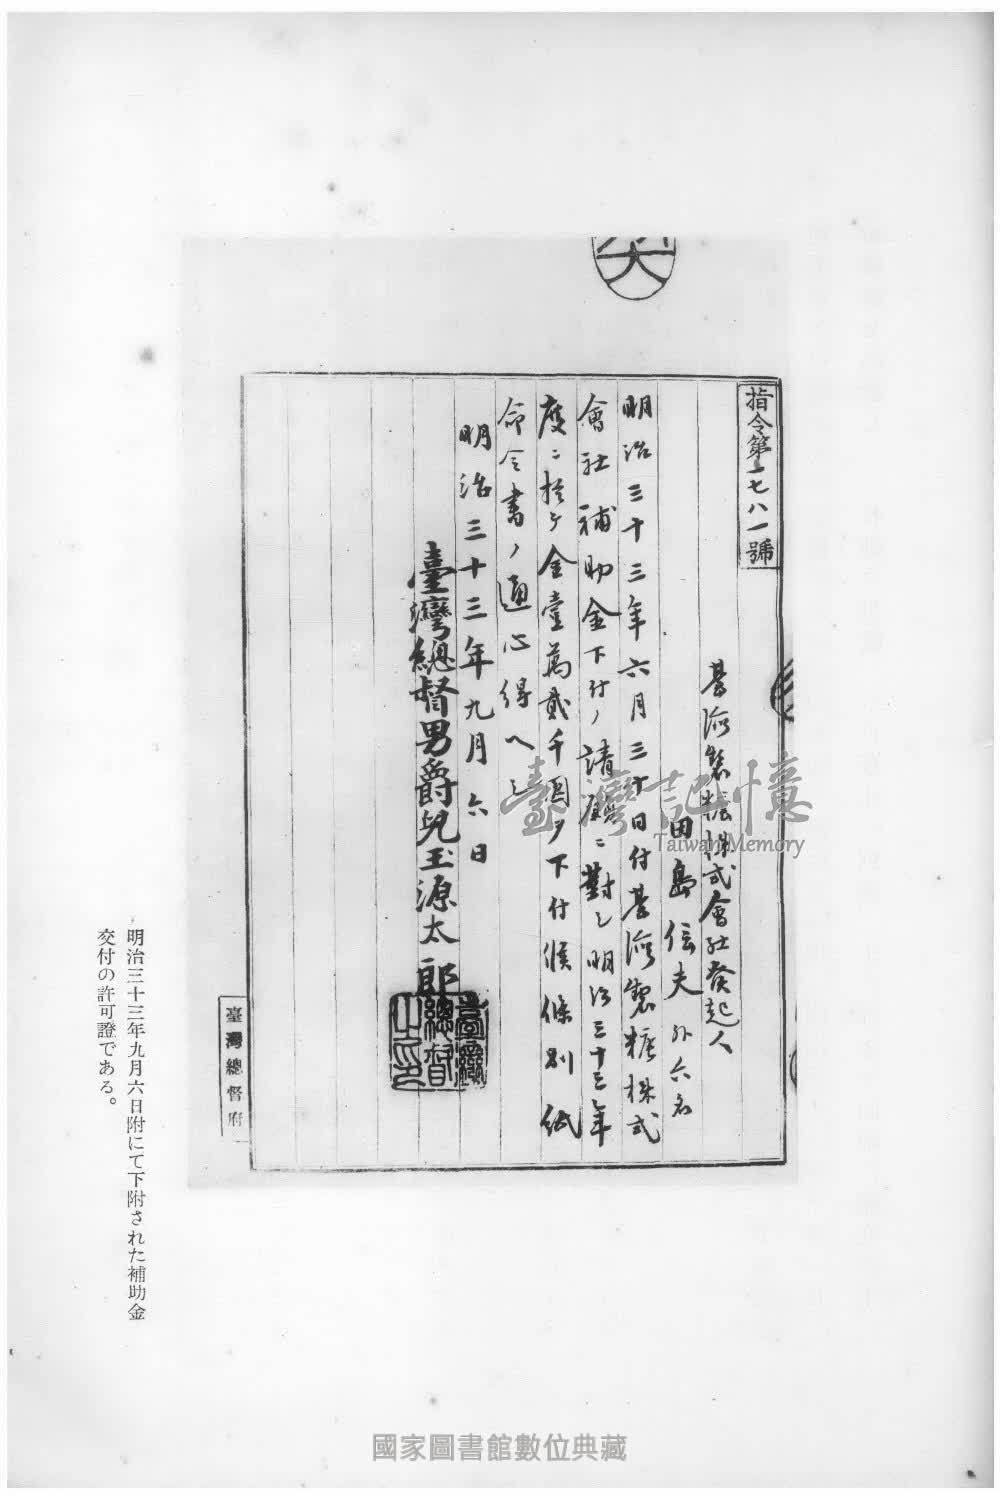 指令第一七八一號
臺湾製糖株式會社発起人
田島信夫外六名
明治三十三年六月三十日付臺湾製糖株式
會社補助金下付ノ請願ニ對シ明治三十三年
度ニ於テ金壹萬貳千圓ヲ下付候條別紙
命令書ノ通心得ヘシ
明治三十三年九月六日
臺灣總督男爵兒玉源太郎
臺灣總督之印
臺灣總督府
明治三十三年九月六日附にて下附された補助金
交付の許可證である。
臺灣記憶
Taiwan Memory
國家圖書館數位典藏